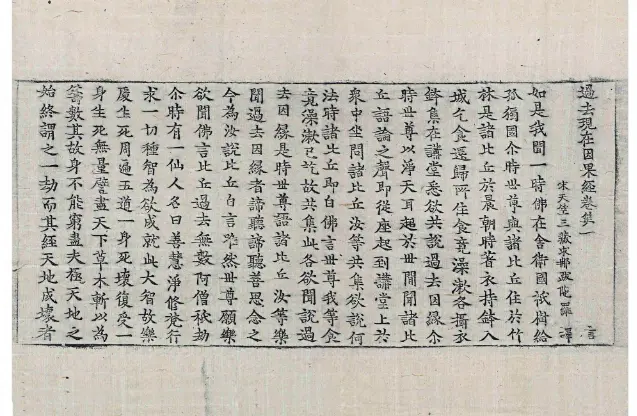 過去現在因果經卷第一
言
宋天竺三藏求那跋陀羅譯
如是我聞一時佛在舍衛國祇樹給
孤獨園尒時世尊與諸比丘住於竹
林是諸比丘於晨朝時著衣持鉢入
城乞食還歸所住食竟澡漱各攝衣
鉢集在講堂悉欲共說過去因緣尒
時世尊以淨天耳起於世間聞諸比
丘語論之聲即從座起到講堂上於
衆中坐問諸比丘汝等共集欲說何
法時諸比丘即白佛言世尊我等食
竟澡漱已訖故共集此各欲聞說過
去因緣是時世尊語諸比丘汝等樂
聞過去因緣者諦聽諦聽善思念之
今為汝說比丘白言唯然世尊願樂
欲聞佛言比丘過去無數阿僧祇劫
尒時有一仙人名曰善慧淨修梵行
求一切種智為欲成就此大智故樂
處生死周遍五道一身死壞復受一
身生死無量譬盡天下草木斬以為
籌數其故身不能窮盡夫極天地之
始終謂之一劫而其經天地成壞者